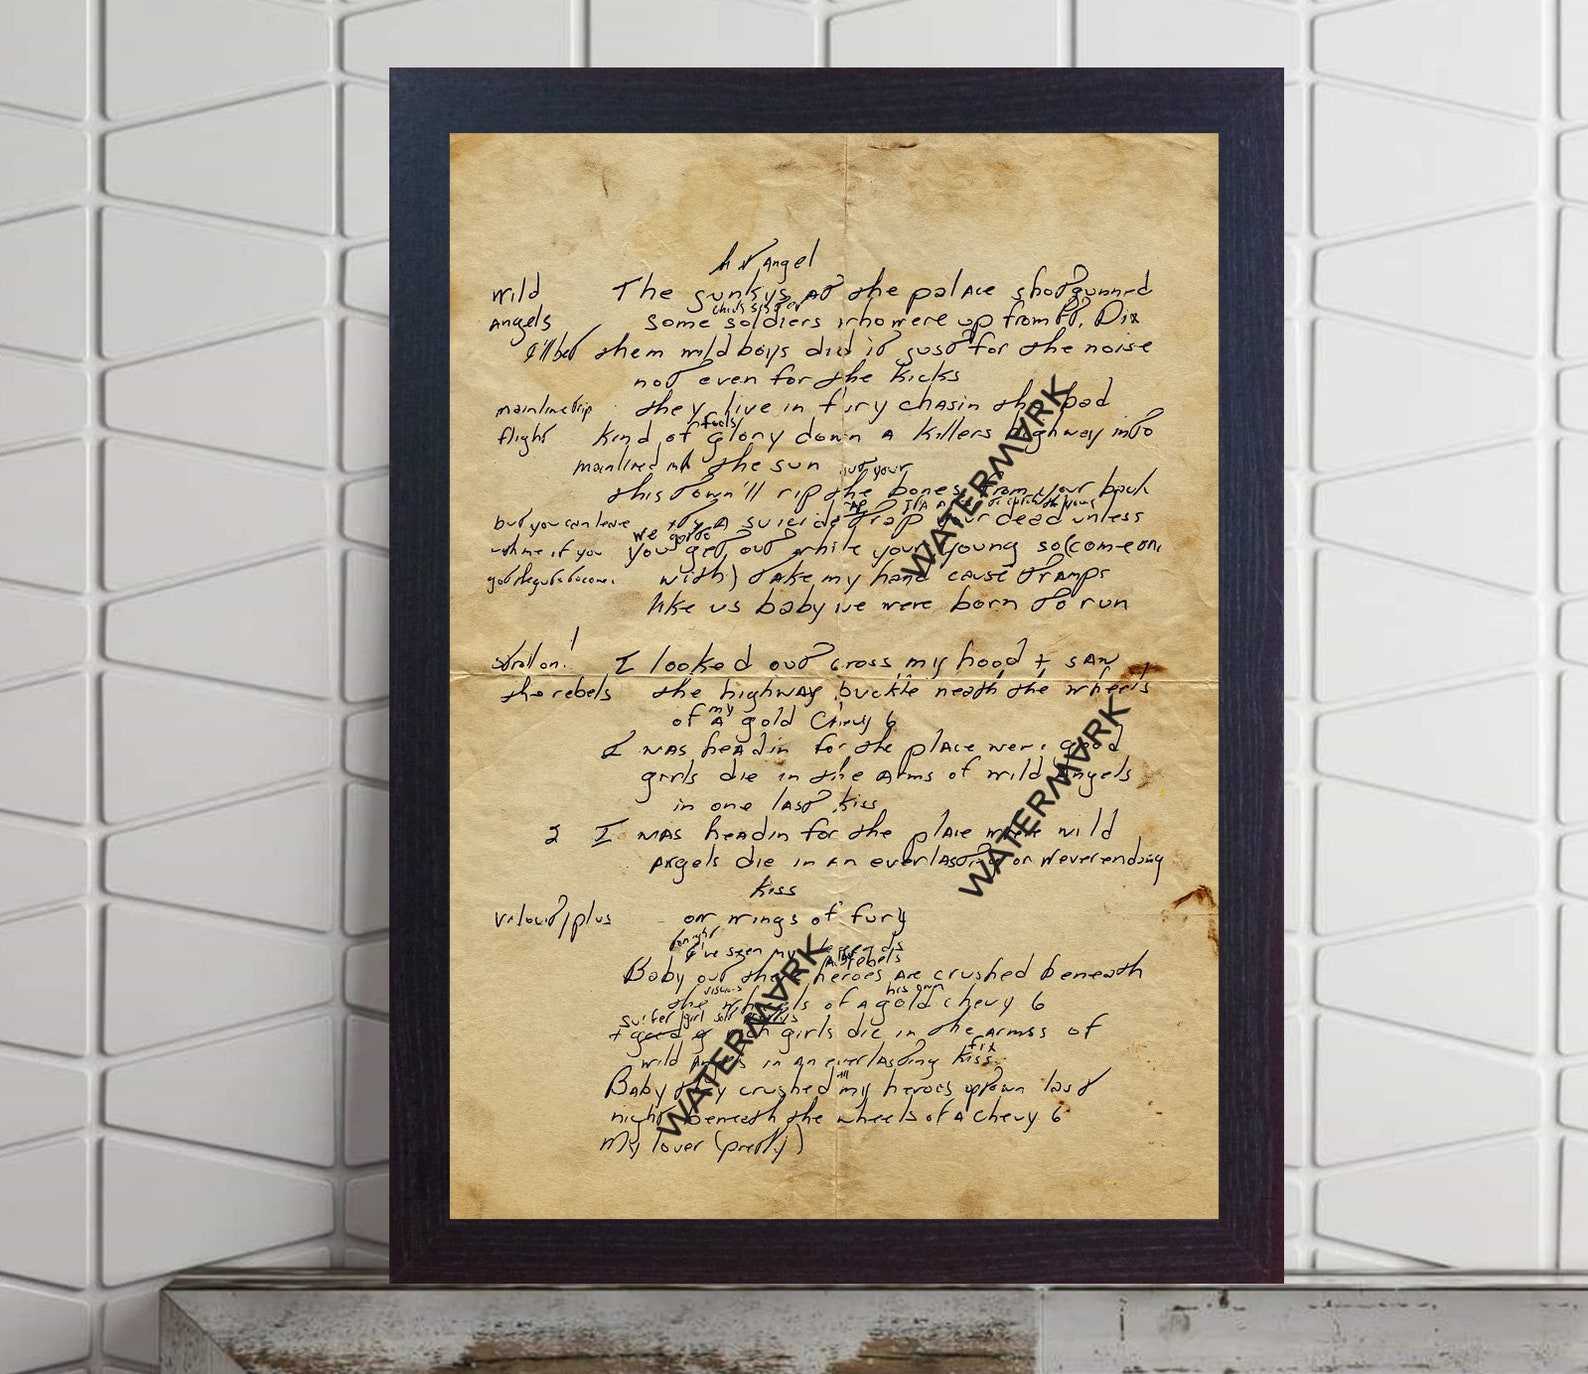 Angel
Wild The junkys at the palace shotgunned
chicks sister
Angels some soldiers who were up from Ft. Dix
I'll bet them wild boys did it just for the noise
not even for the kicks
mainline trip they live in fury chasin the bad
fools
flight kind of glory down a killers highway into
mainlined the sun out your
this town'll rip the bones from your back
but you can leave its a suicide trap your dead unless
we gotta
with me if you you get out while your young so (come on
got the guts with) take my hand cause tramps
like us baby we were born to run
stroll on! I looked out cross my hood + saw
the rebels the highway buckle neath the wheels
my
of a gold Chevy 6
I was headin for the place were good
girls die in the arms of wild angels
in one last kiss
2 I was headin for the place where wild
angels die in an everlasting or neverending
kiss
plus on wings of fury
tonight
I've seen my legends
rebels
Baby out there heroes are crushed beneath
his own
the wheels of a gold chevy 6
surfer girl
+ good girls die in the armss of
fix
wild angels in an everlasting kiss
Baby they crushed my heroes uptown last
night beneath the wheels of a chevy 6
My lover (pretty)
WATERMARK
WATERMARK
WATERMARK